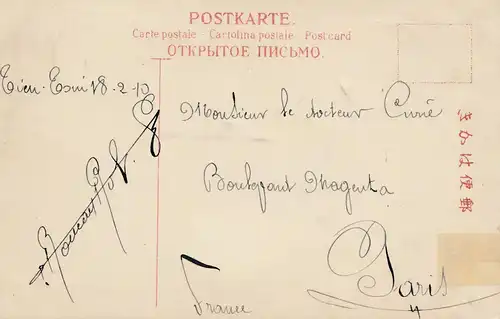 POSTKARTE.
Carte postale - Cartolina postale - Postcard
ОТКРЫТОЕ ПИСЬМО.
Tien-Tsin 18-2-10
Monsieur le docteur Curié
Boulevard Magenta
Paris
France
きかは便郵